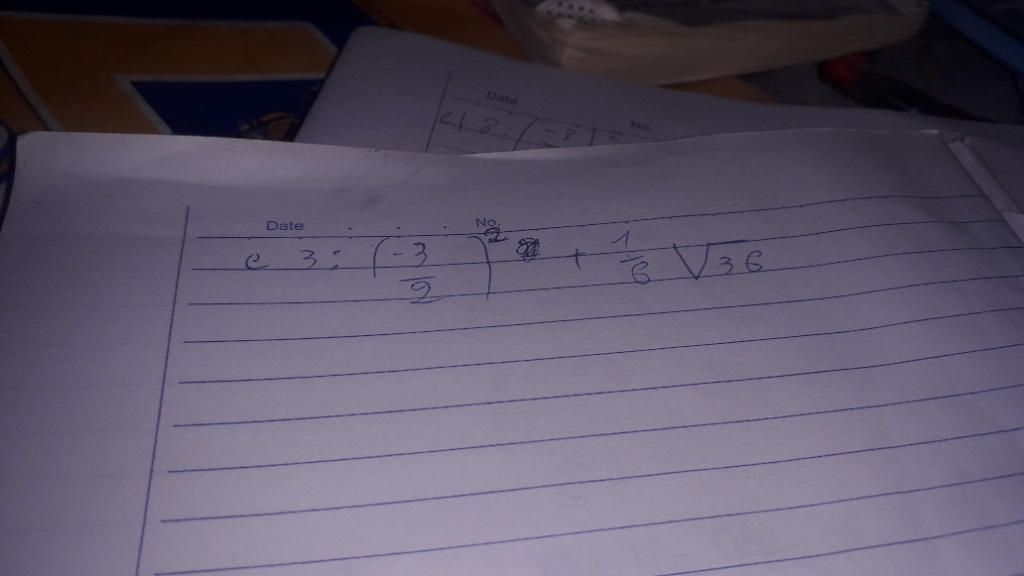 Date No.
c| 3 : (-3
Date . . . No.
c 3 : (-3/2)² + 1/6 √36